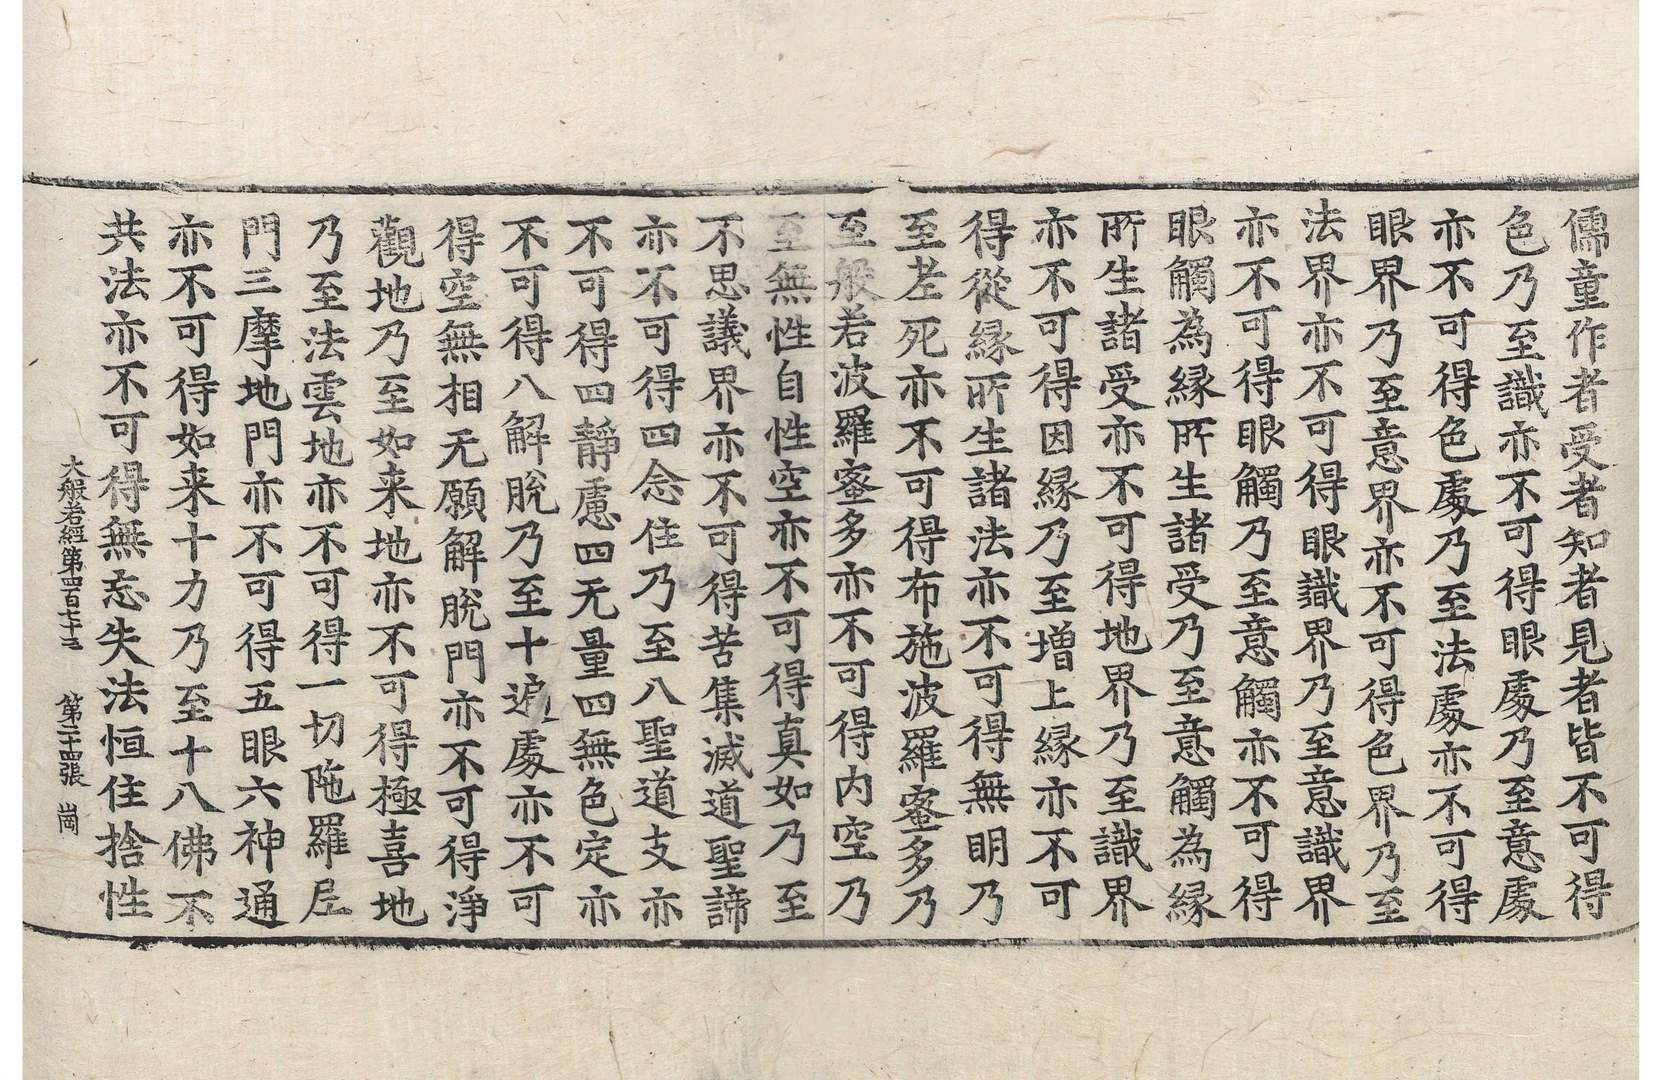 儒童作者受者知者見者皆不可得
色乃至識亦不可得眼處乃至意處
亦不可得色處乃至法處亦不可得
眼界乃至意界亦不可得色界乃至
法界亦不可得眼識界乃至意識界
亦不可得眼觸乃至意觸亦不可得
眼觸為緣所生諸受乃至意觸為緣
所生諸受亦不可得地界乃至識界
亦不可得因緣乃至增上緣亦不可
得從緣所生諸法亦不可得無明乃
至老死亦不可得布施波羅蜜多乃
至般若波羅蜜多亦不可得內空乃
至無性自性空亦不可得真如乃至
不思議界亦不可得苦集滅道聖諦
亦不可得四念住乃至八聖道支亦
不可得四靜慮四无量四無色定亦
不可得八解脫乃至十遍處亦不可
得空無相无願解脫門亦不可得淨
觀地乃至如来地亦不可得極喜地
乃至法雲地亦不可得一切陁羅尼
門三摩地門亦不可得五眼六神通
亦不可得如来十力乃至十八佛不
共法亦不可得無忘失法恒住捨性
大般若經第四百七十三 第二十四張 崗